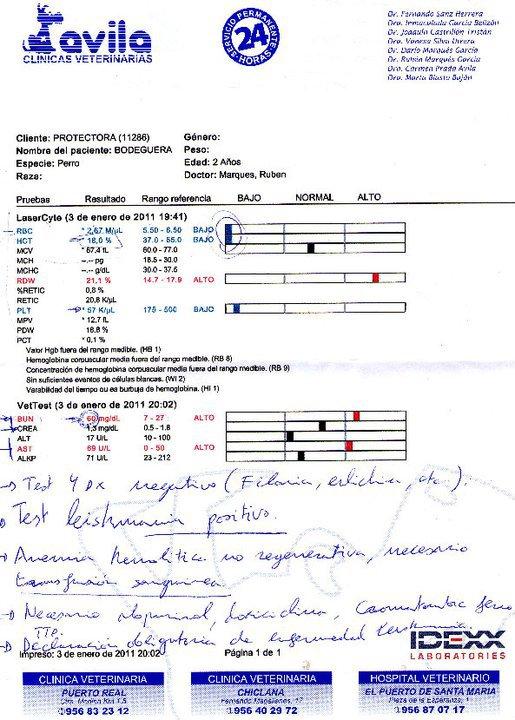 avila
CLINICAS VETERINARIAS
SERVICIO PERMANENTE
24
HORAS
Dr. Fernando Sanz Herrera
Dra. Inmaculada García Bellzón
Dr. Joaquín Castrillón Tristán
Dra. Vanesa Silva Utrera
Dr. Darío Marqués García
Dr. Rubén Marqués García
Dra. Carmen Prado Avila
Dra. Marta Blasto Buján
Cliente: PROTECTORA (11286) Género:
Nombre del paciente: BODEGUERA Peso:
Especie: Perro Edad: 2 Años
Raza: Doctor: Marques, Ruben
Pruebas Resultado Rango referencia BAJO NORMAL ALTO
LaserCyte (3 de enero de 2011 19:41)
RBC * 2,67 M/µL 5.50 - 8.50 BAJO
HCT * 18,0 % 37.0 - 55.0 BAJO
MCV * 67,4 fL 60.0 - 77.0
MCH --.-- pg 18.5 - 30.0
MCHC --.-- g/dL 30.0 - 37.5
RDW 21,1 % 14.7 - 17.9 ALTO
%RETIC 0,8 %
RETIC 20,8 K/µL
PLT * 57 K/µL 175 - 500 BAJO
MPV * 12,7 fL
PDW 18,8 %
PCT * 0,1 %
Valor Hgb fuera del rango medible. (HB 1)
Hemoglobina corpuscular media fuera del rango medible. (RB 8)
Concentración de hemoglobina corpuscular media fuera del rango medible. (RB 9)
Sin suficientes eventos de células blancas. (WI 2)
Variabilidad del tiempo ou ea burbuja de hemoglobina. (HI 1)
VetTest (3 de enero de 2011 20:02)
BUN 60 mg/dL 7 - 27 ALTO
CREA 1,3 mg/dL 0.5 - 1.8
ALT 17 U/L 10 - 100
AST 69 U/L 0 - 50 ALTO
ALKP 71 U/L 23 - 212
→ Test 4 DX negativo (Filaria, erlichia, etc).
→ Test leishmania positivo.
→ Anemia hemolítica no regenerativa, necesario
transfusión sanguínea
→ Necesario alopurinol, doxiciclina,
TTP.
→ Declaración obligatoria de enfermedad leishmania.
Impreso: 3 de enero de 2011 20:02 Página 1 de 1
IDEXX
LABORATORIES
CLINICA VETERINARIA
PUERTO REAL
956 83 23 12
CLINICA VETERINARIA
CHICLANA
Fernando Magallanes, 17
956 40 29 72
HOSPITAL VETERINARIO
EL PUERTO DE SANTA MARIA
Plaza de la Esperanza, 1
956 87 07 17